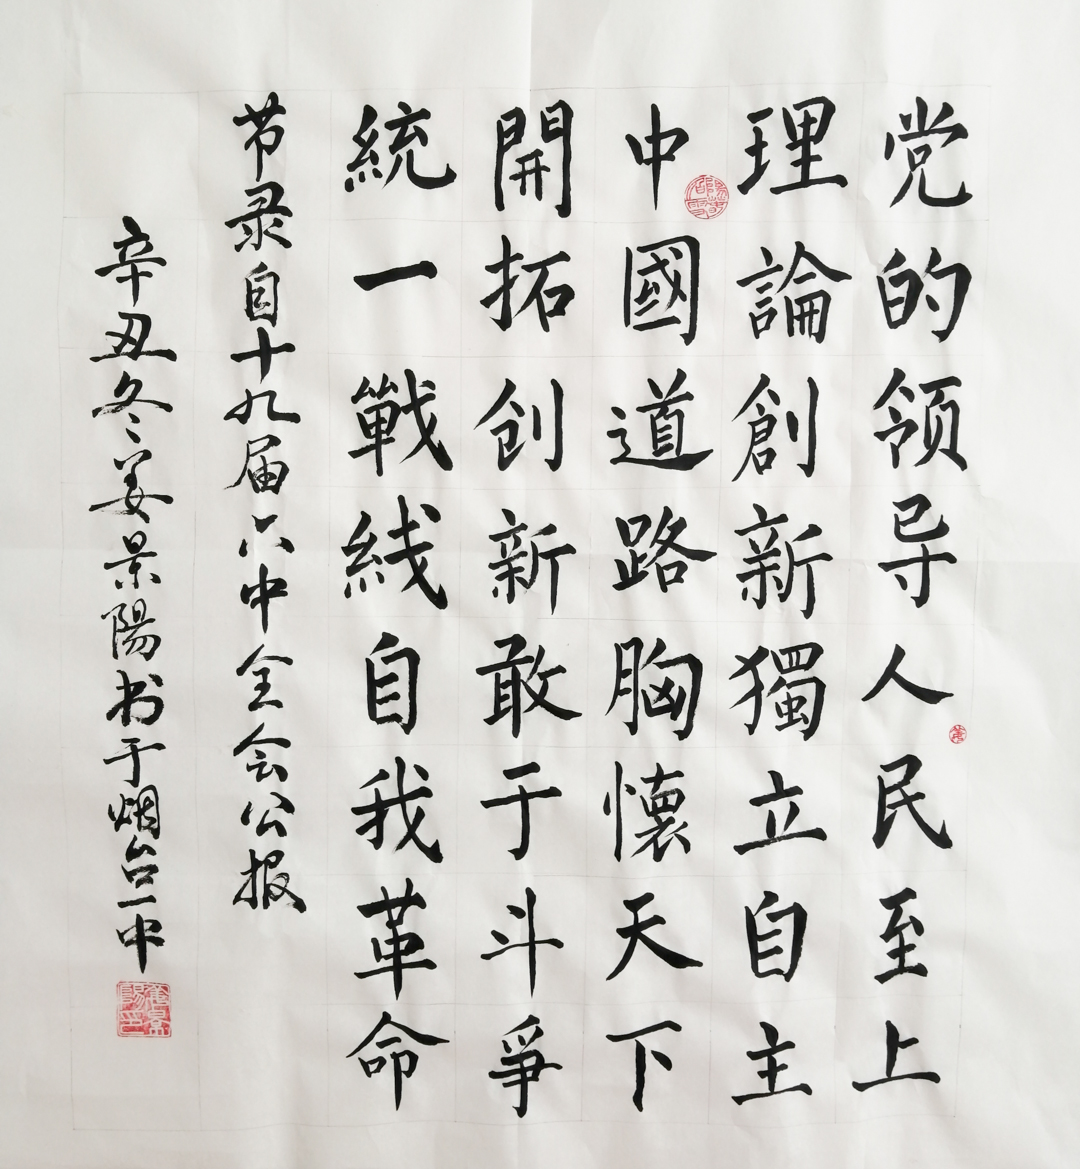 党的领导人民至上
理論創新獨立自主
中國道路胸懷天下
開拓创新敢于斗爭
統一戰线自我革命
节录自十九届六中全会公报
辛丑冬姜景陽书于烟台一中